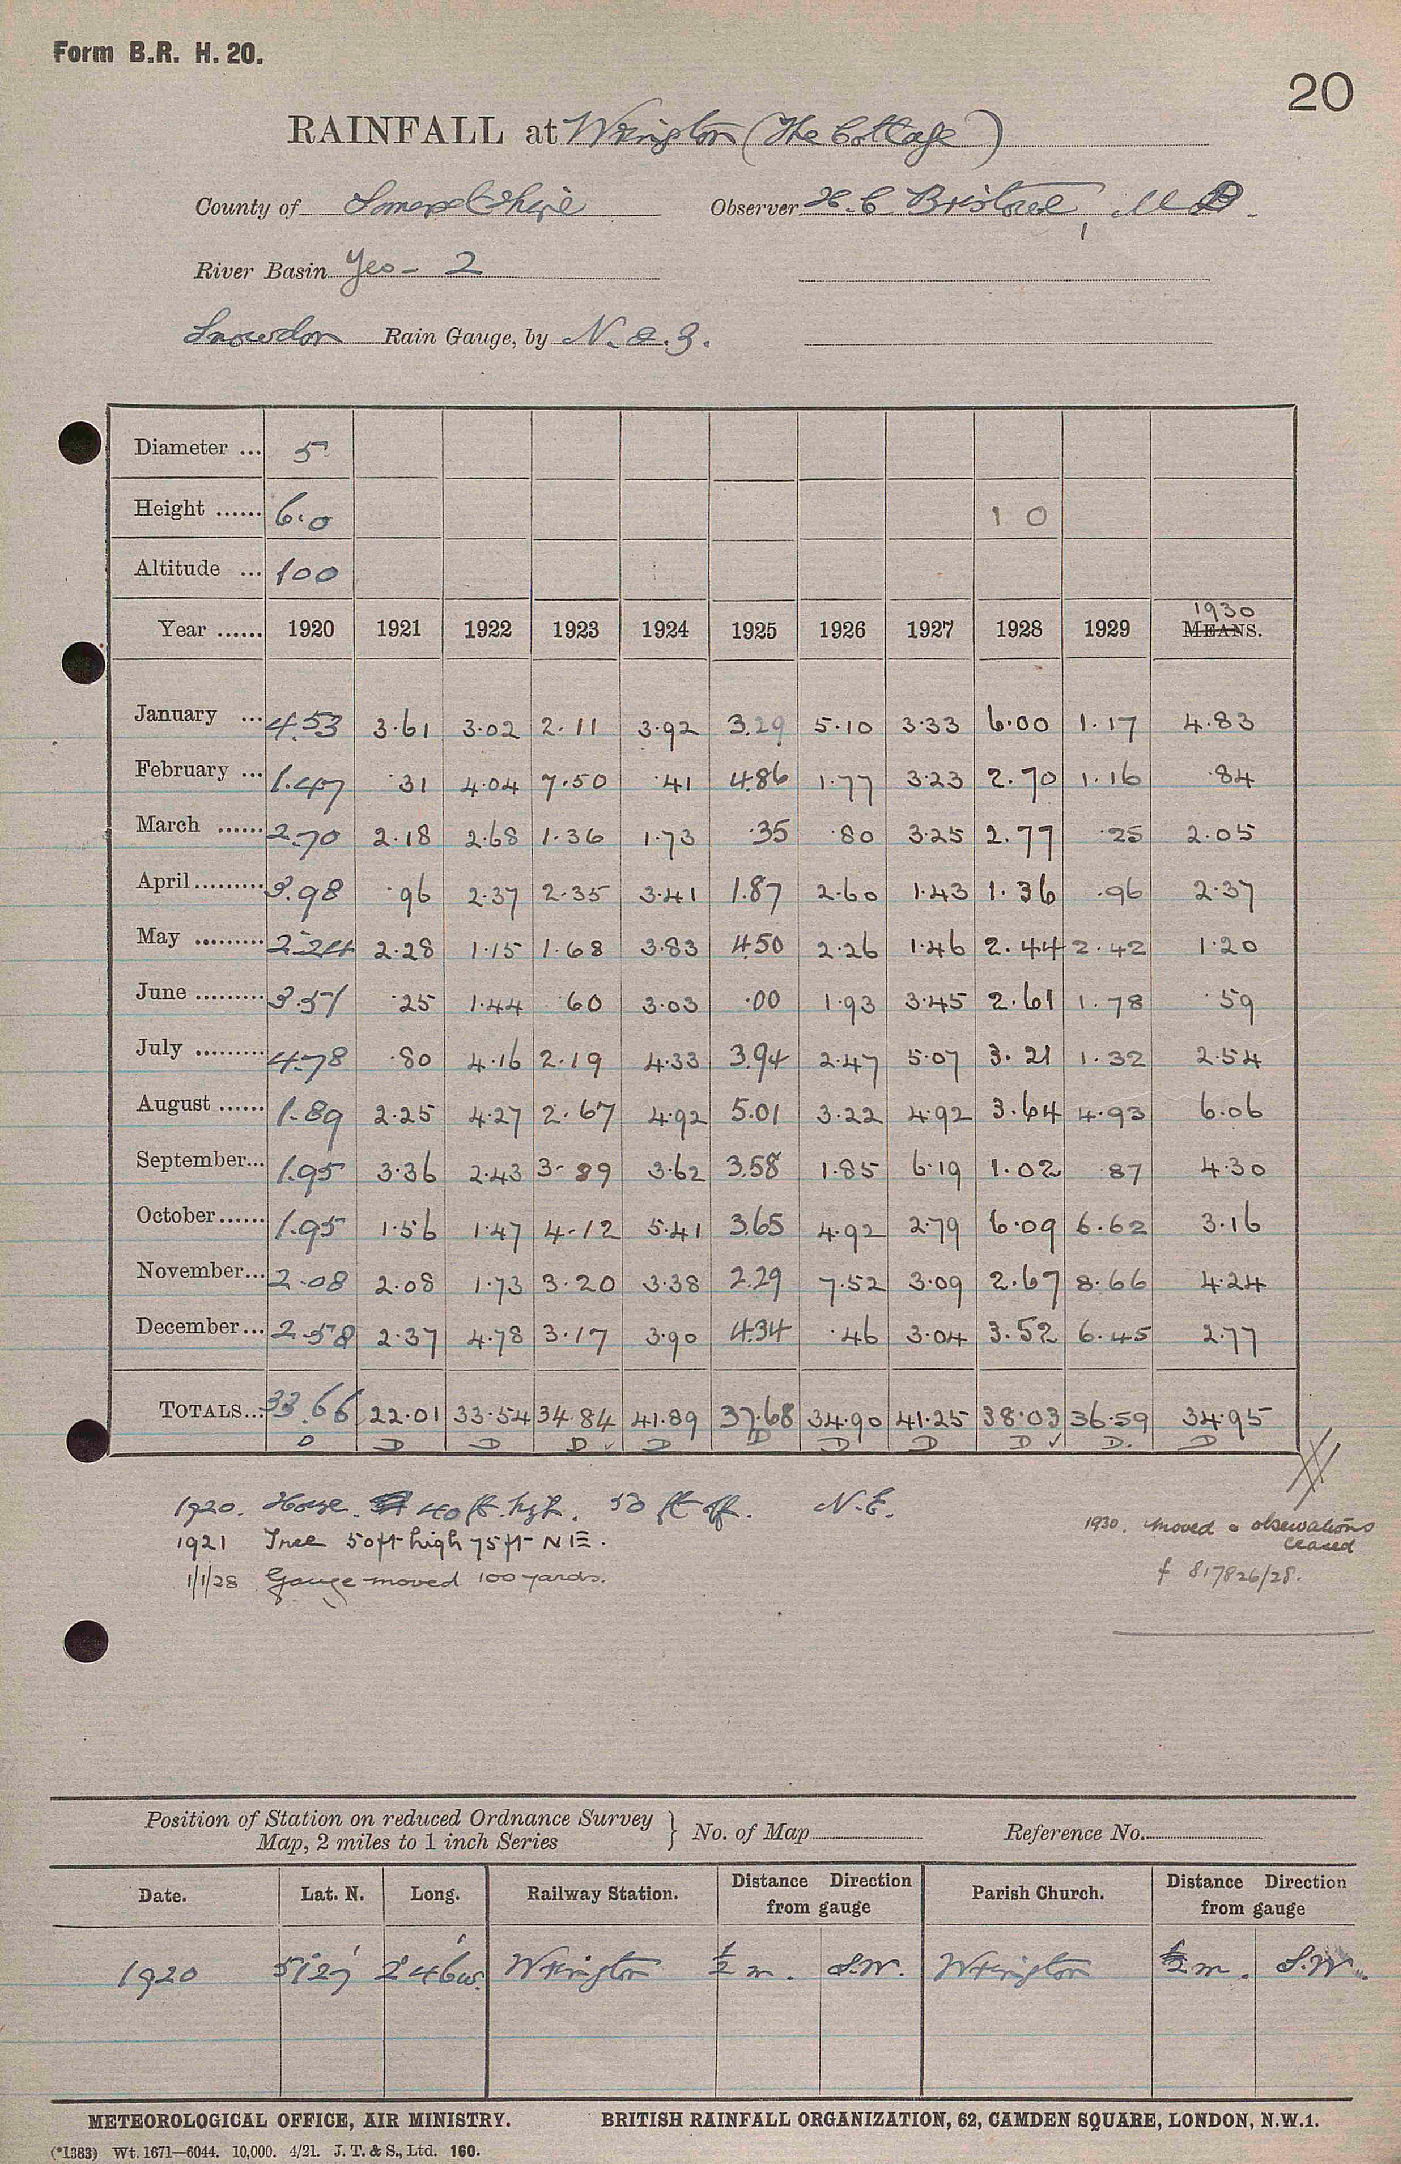 Form B.R. H. 20.
20
RAINFALL at Wrington (The Cottage)
County of Somersetshire Observer H. C. Bristowe, M D.
River Basin Yeo - 2
Snowdon Rain Gauge, by N. & Z.
Diameter ... 5
Height ...... 6.0 1 0
Altitude ... 100
1930
Year ...... 1920 1921 1922 1923 1924 1925 1926 1927 1928 1929 MEANS.
January ... 4.53 3.61 3.02 2.11 3.92 3.29 5.10 3.33 6.00 1.17 4.83
February ... 1.47 .31 4.04 7.50 .41 4.86 1.77 3.23 2.70 1.16 .84
March ...... 2.70 2.18 2.68 1.36 1.73 .35 .80 3.25 2.77 .25 2.05
April ......... 3.98 .96 2.37 2.35 3.41 1.87 2.60 1.43 1.36 .96 2.37
May ......... 2.24 2.28 1.15 1.68 3.83 4.50 2.26 1.46 2.44 2.42 1.20
June ......... 3.51 .25 1.44 60 3.03 .00 1.93 3.45 2.61 1.78 .59
July ......... 4.78 .80 4.16 2.19 4.33 3.94 2.47 5.07 3.21 1.32 2.54
August ...... 1.89 2.25 4.27 2.67 4.92 5.01 3.22 4.92 3.64 4.93 6.06
September... 1.95 3.36 2.43 3.89 3.62 3.58 1.85 6.19 1.02 .87 4.30
October...... 1.95 1.56 1.47 4.12 5.41 3.65 4.92 2.79 6.09 6.62 3.16
November... 2.08 2.08 1.73 3.20 3.38 2.29 7.52 3.09 2.67 8.66 4.24
December... 2.58 2.37 4.78 3.17 3.90 4.34 .46 3.04 3.52 6.45 2.77
TOTALS... 33.66 22.01 33.54 34.84 41.89 37.68 34.90 41.25 38.03 36.59 34.95
D D D D ✓ D D D D D ✓ D. D
1920. House. 40 ft. high. 50 ft off. N.E.
1921 Tree 50ft high 75ft NE.
1/1/28 Gauge moved 100 yards.
1930. moved & observations
ceased
f 817826/28.
Position of Station on reduced Ordnance Survey
Map, 2 miles to 1 inch Series } No. of Map Reference No.
Date. Lat. N. Long. Railway Station. Distance Direction from gauge Parish Church. Distance Direction from gauge
1920 51° 27' 2° 46' W. Wrington ½ m. S.W. Wrington ½ m. S.W.
METEOROLOGICAL OFFICE, AIR MINISTRY. BRITISH RAINFALL ORGANIZATION, 62, CAMDEN SQUARE, LONDON, N.W.1.
(*1383) Wt. 1671—6044. 10,000. 4/21. J. T. & S., Ltd. 160.